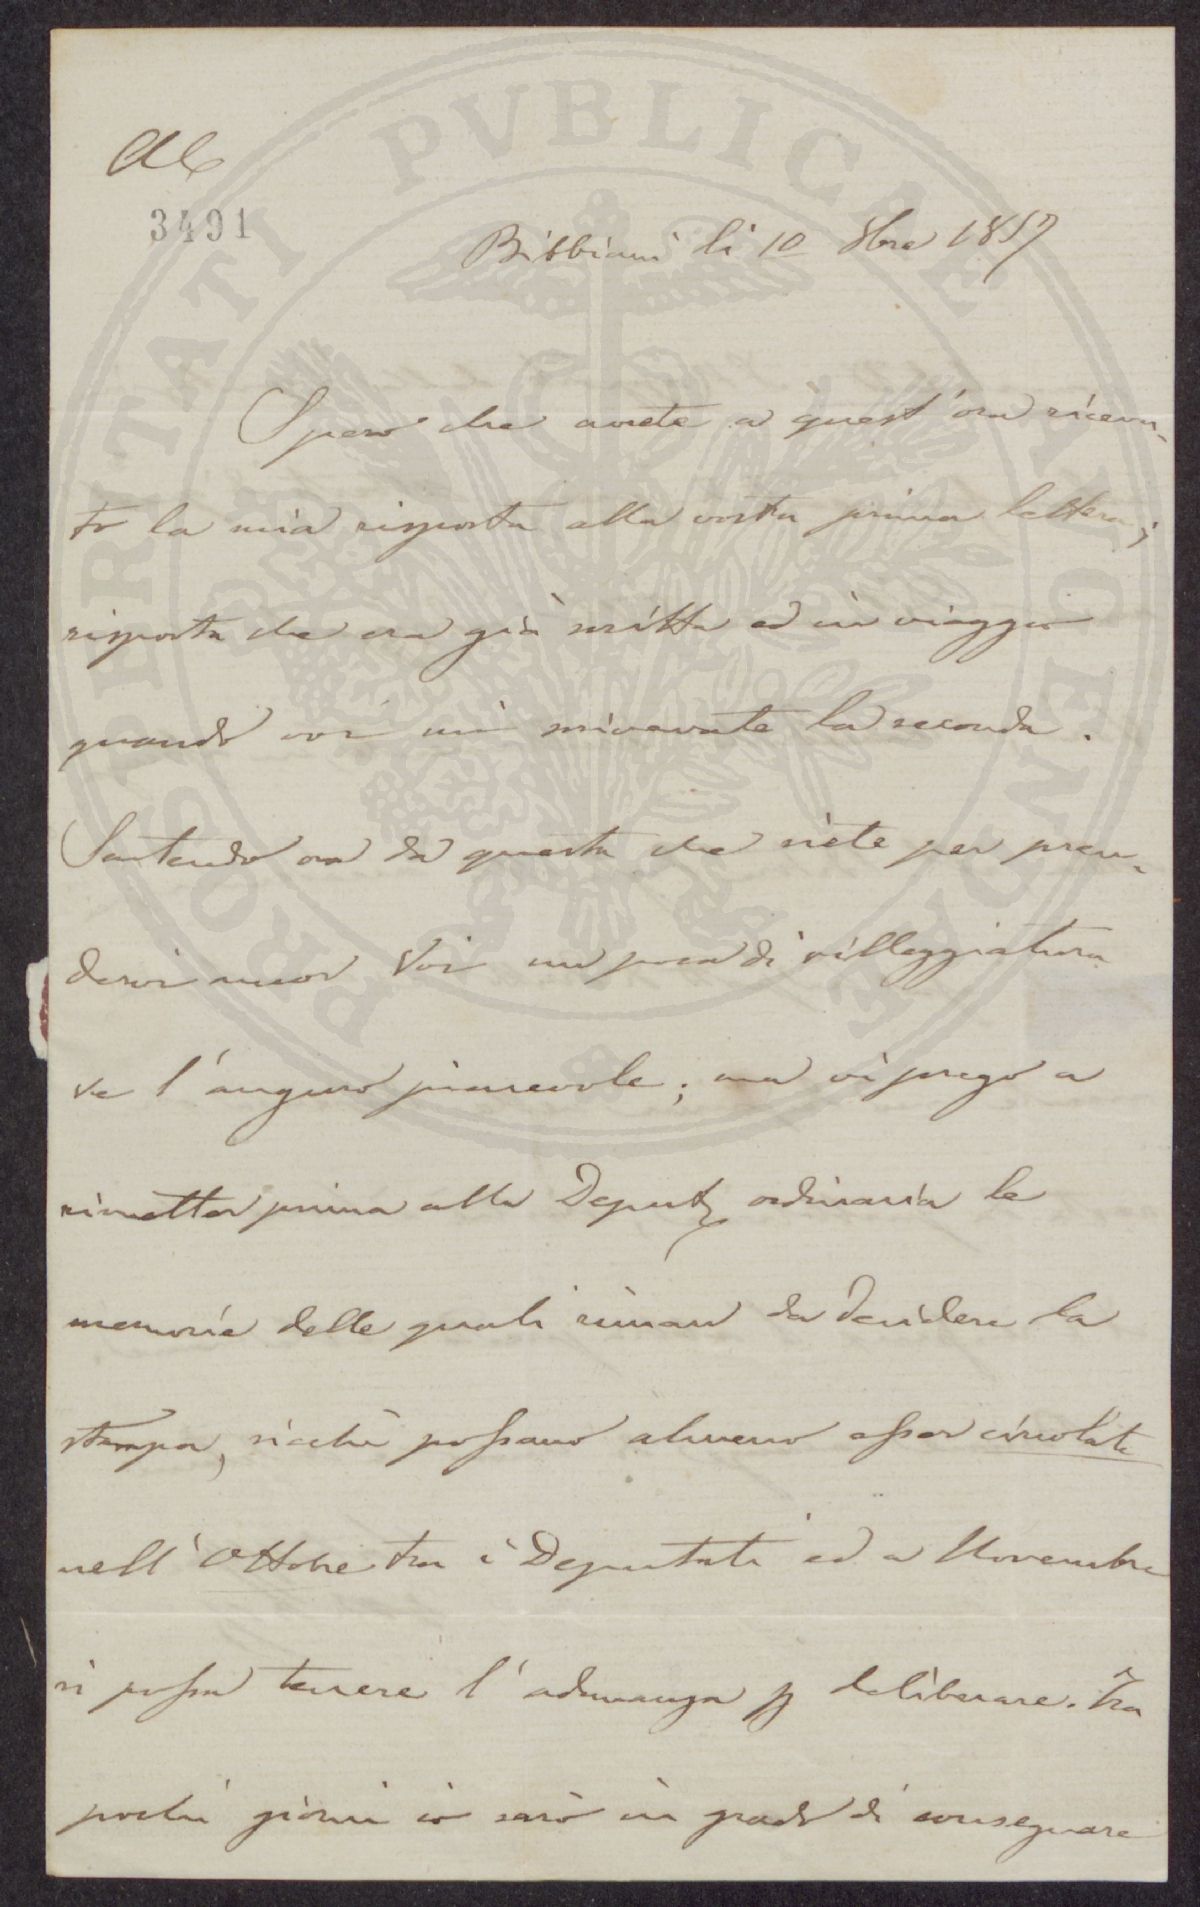 AC
3491
Bibbiani li 10 8bre 1857
Spero che avrete a quest'ora ricevu-
to la mia risposta alla vostra prima lettera;
risposta che era già scritta ed in viaggio
quando voi mi scrivevate la seconda.
Sentendo ora da questa che siete per pren-
dervi ancor Voi un poca di villeggiatura
ve l'auguro piacevole; ma vi prego a
rimetter prima alla Deput. ordinaria le
memorie delle quali riman da decidere la
stampa, sicchè possano almeno esser circolate
nell'Ottobre tra i Deputati ed a Novembre
si possa tenere l'adunanza p deliberare. Tra
pochi giorni io sarò in grado di consegnare
PROSPERITATI PVBLICAE AVGENDAE